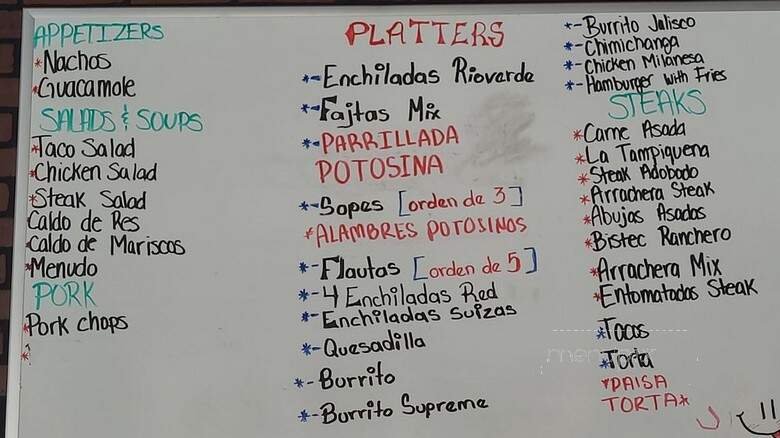 APPETIZERS
*Nachos
*Guacamole
SALADS & SOUPS
*Taco Salad
*Chicken Salad
*Steak Salad
Caldo de Res
*Caldo de Mariscos
*Menudo
PORK
*Pork chops
*
PLATTERS
*-Enchiladas Rioverde
*-Fajtas Mix
*-PARRILLADA
POTOSINA
*-Sopes [orden de 3]
*ALAMBRES POTOSINOS
*-Flautas [orden de 5]
*-4 Enchiladas Red
*-Enchiladas Suizas
*-Quesadilla
*-Burrito
*-Burrito Supreme
*-Burrito Jalisco
*-Chimichanga
*-Chicken Milanesa
*-Hamburger with Fries
STEAKS
*Carne Asada
*La Tampiquena
*Steak Adobado
*Arrachera Steak
*Abujas Asados
*Bistec Ranchero
*Arrachera Mix
*Entomatadas Steak
*Tacos
*Torta
*PAISA
TORTA*